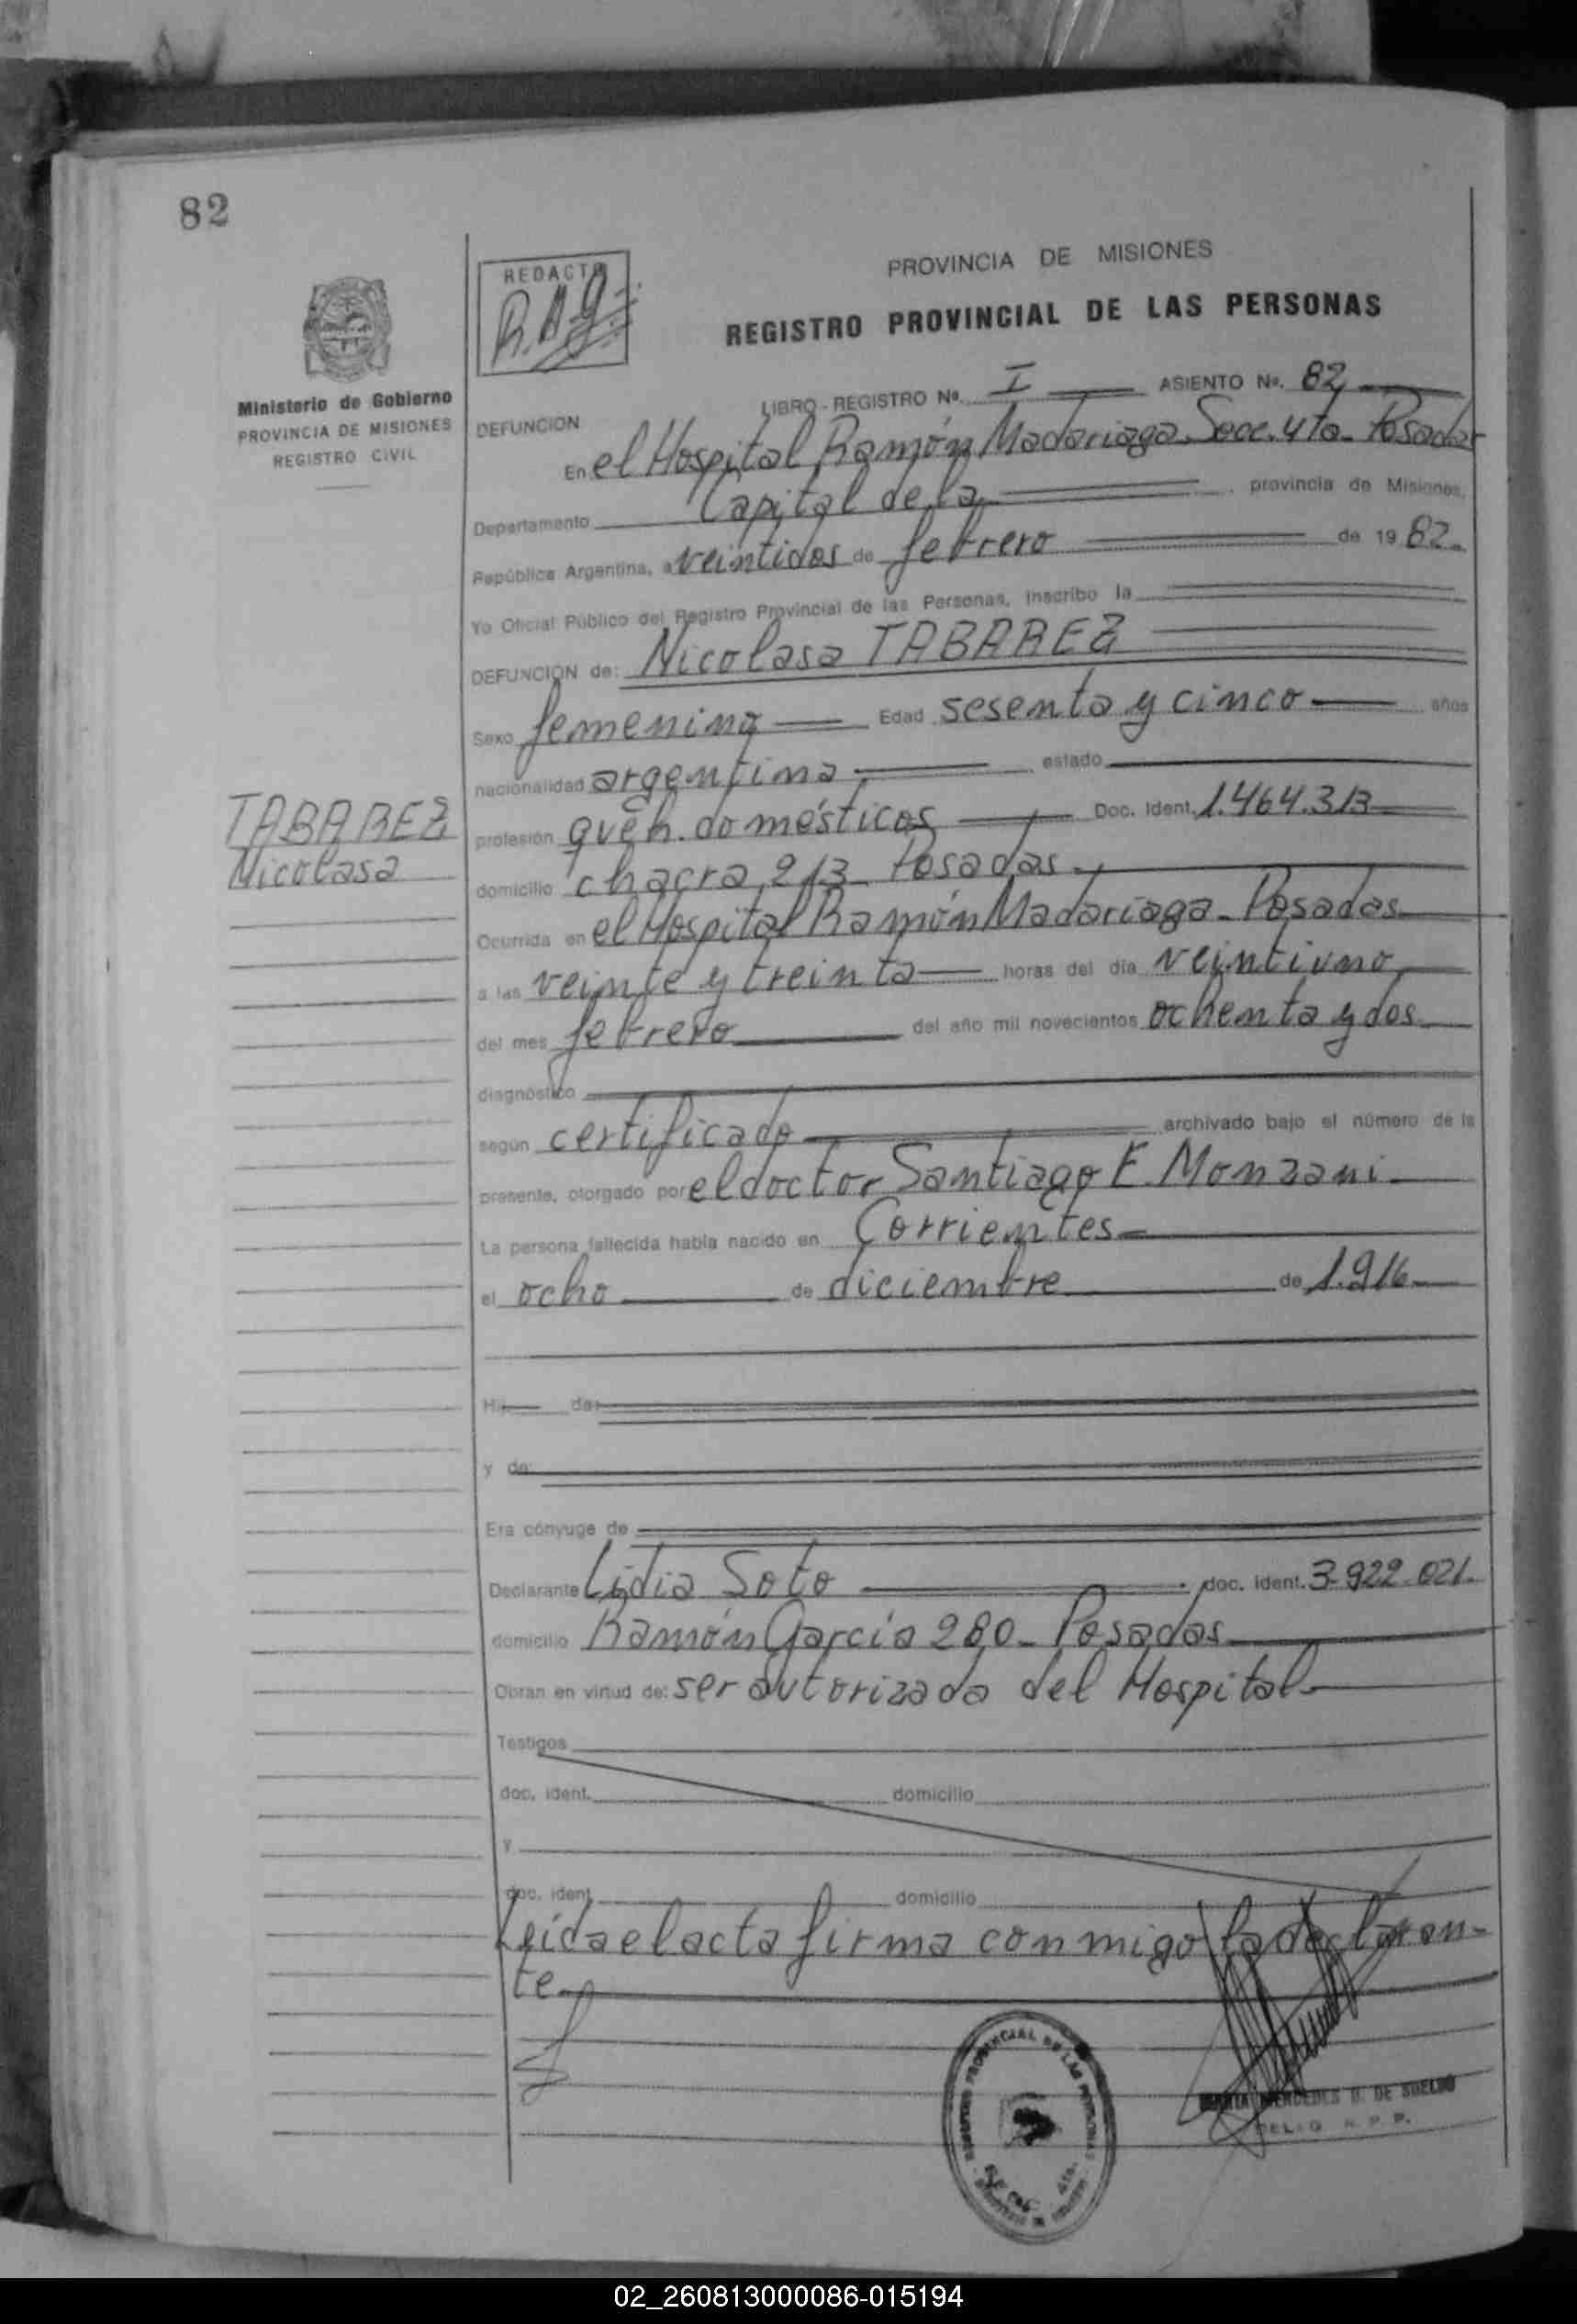 82
REDACTO
R.A.G.
PROVINCIA DE MISIONES
REGISTRO PROVINCIAL DE LAS PERSONAS
Ministerio de Gobierno
PROVINCIA DE MISIONES
REGISTRO CIVIL
LIBRO - REGISTRO Nº. I ASIENTO Nº. 82
DEFUNCION
En el Hospital Ramón Madariaga. Secc. 4ta. Posadas
Departamento Capital de la provincia de Misiones,
República Argentina, a veintidos de febrero de 19 82.
Yo Oficial Público del Registro Provincial de las Personas, inscribo la
DEFUNCION de: Nicolasa TABAREZ
Sexo femenino Edad sesenta y cinco años
nacionalidad argentina estado
TABAREZ
Nicolasa
profesión queh. domésticos Doc. Ident. 1.464.313
domicilio chacra 213 Posadas
Ocurrida en el Hospital Ramón Madariaga - Posadas
a las veinte y treinta horas del día veintiuno
del mes febrero del año mil novecientos ochenta y dos
diagnóstico
según certificado archivado bajo el número de la
presente, otorgado por el doctor Santiago E. Monzani
La persona fallecida había nacido en Corrientes
el ocho de diciembre de 1.916
Hij de:
y de:
Era cónyuge de
Declarante Lidia Soto doc. ident. 3.922.021.
domicilio Ramón García 280 - Posadas
Obran en virtud de: ser autorizada del Hospital
Testigos
doc. ident. domicilio
y
doc. ident. domicilio
Leida el acta firma conmigo la declaran-
te
REGISTRO PROVINCIAL DE LAS PERSONAS
MARIA MERCEDES DE SUELDO
R. P. P.
02_260813000086-015194